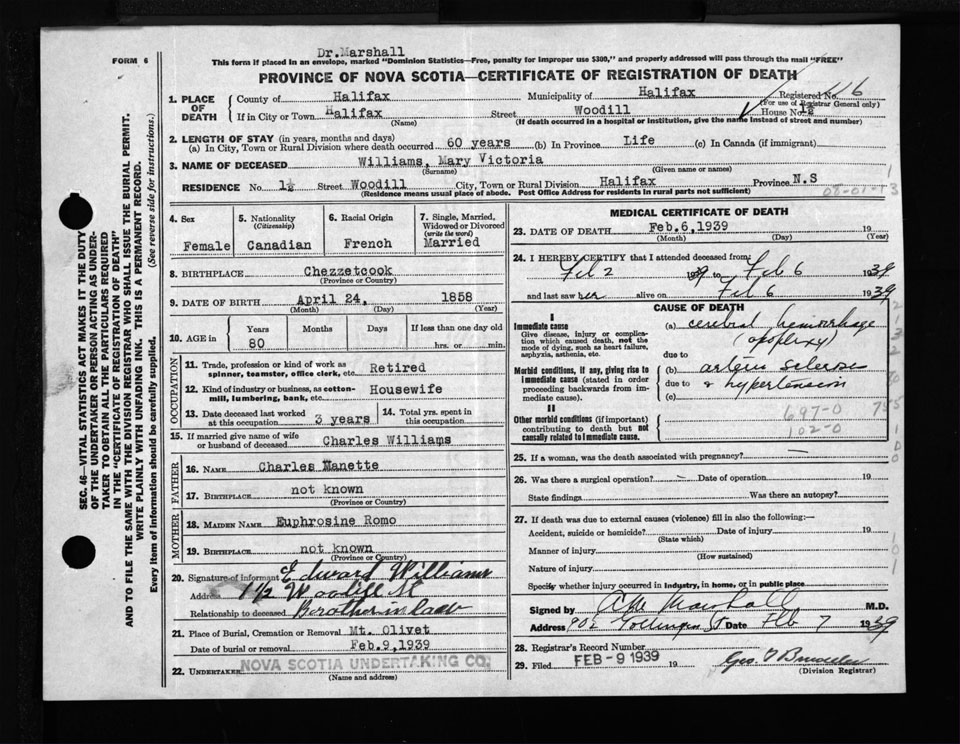 Dr.Marshall
FORM 6
This form if placed in an envelope, marked "Dominion Statistics—Free, penalty for improper use $300," and properly addressed will pass through the mail "FREE"
PROVINCE OF NOVA SCOTIA—CERTIFICATE OF REGISTRATION OF DEATH
SEC. 46—VITAL STATISTICS ACT MAKES IT THE DUTY
OF THE UNDERTAKER OR PERSON ACTING AS UNDER-
TAKER TO OBTAIN ALL THE PARTICULARS REQUIRED
IN THE "CERTIFICATE OF REGISTRATION OF DEATH"
AND TO FILE THE SAME WITH THE DIVISION REGISTRAR WHO SHALL ISSUE THE BURIAL PERMIT.
WRITE PLAINLY WITH UNFADING INK. THIS IS A PERMANENT RECORD.
Every item of information should be carefully supplied. (See reverse side for instructions.)
1. PLACE OF DEATH
County of Halifax Municipality of Halifax Registered No. 46
(For use of Registrar General only)
If in City or Town Halifax Street Woodill House No. 1½
(Name) (If death occurred in a hospital or institution, give the name instead of street and number)
2. LENGTH OF STAY (in years, months and days)
(a) In City, Town or Rural Division where death occurred 60 years (b) In Province Life (c) In Canada (if immigrant)
3. NAME OF DECEASED Williams, Mary Victoria
(Surname) (Given name or names)
RESIDENCE No. 1½ Street Woodill City, Town or Rural Division Halifax Province N.S
(Residence means usual place of abode. Post Office Address for residents in rural parts not sufficient)
4. Sex
Female
5. Nationality
(Citizenship)
Canadian
6. Racial Origin
French
7. Single, Married,
Widowed or Divorced
(write the word)
Married
8. BIRTHPLACE Chezzetcook
(Province or Country)
9. DATE OF BIRTH April 24, 1858
(Month) (Day) (Year)
10. AGE in
Years Months Days If less than one day old
80 hrs. or min.
OCCUPATION
11. Trade, profession or kind of work as
spinner, teamster, office clerk, etc. Retired
12. Kind of industry or business, as cotton-
mill, lumbering, bank, etc. Housewife
13. Date deceased last worked
at this occupation 3 years
14. Total yrs. spent in
this occupation
15. If married give name of wife
or husband of deceased Charles Williams
FATHER
16. NAME Charles Manette
17. BIRTHPLACE not known
(Province or Country)
MOTHER
18. MAIDEN NAME Euphrosine Romo
19. BIRTHPLACE not known
(Province or Country)
20. Signature of informant Edward Williams
Address 1 1/2 Woodill St
Relationship to deceased Brother in law
21. Place of Burial, Cremation or Removal Mt. Olivet
Date of burial or removal Feb.9,1939
22. UNDERTAKER NOVA SCOTIA UNDERTAKING CO.
(Name and address)
MEDICAL CERTIFICATE OF DEATH
23. DATE OF DEATH Feb.6,1939 19
(Month) (Day) (Year)
24. I HEREBY CERTIFY that I attended deceased from:
Feb 2 1939 to Feb 6 1939
and last saw her alive on Feb 6 1939
CAUSE OF DEATH
I
Immediate cause
Give disease, injury or complica-
tion which caused death, not the
mode of dying, such as heart failure,
asphyxia, asthenia, etc.
(a) cerebral hemorrhage
(apoplexy)
due to
Morbid conditions, if any, giving rise to
immediate cause (stated in order
proceeding backwards from im-
mediate cause).
(b) arterio sclerosis
due to & hypertension
(c)
II
Other morbid conditions (if important)
contributing to death but not
causally related to immediate cause.
697-0
102-0
25. If a woman, was the death associated with pregnancy?
26. Was there a surgical operation? — Date of operation 19
State findings Was there an autopsy?
27. If death was due to external causes (violence) fill in also the following:—
Accident, suicide or homicide? Date of injury 19
(State which)
Manner of injury
(How sustained)
Nature of injury
Specify whether injury occurred in industry, in home, or in public place
Signed by Marshall M.D.
Address Date Feb 7 1939
28. Registrar's Record Number
29. Filed FEB - 9 1939 19
(Division Registrar)